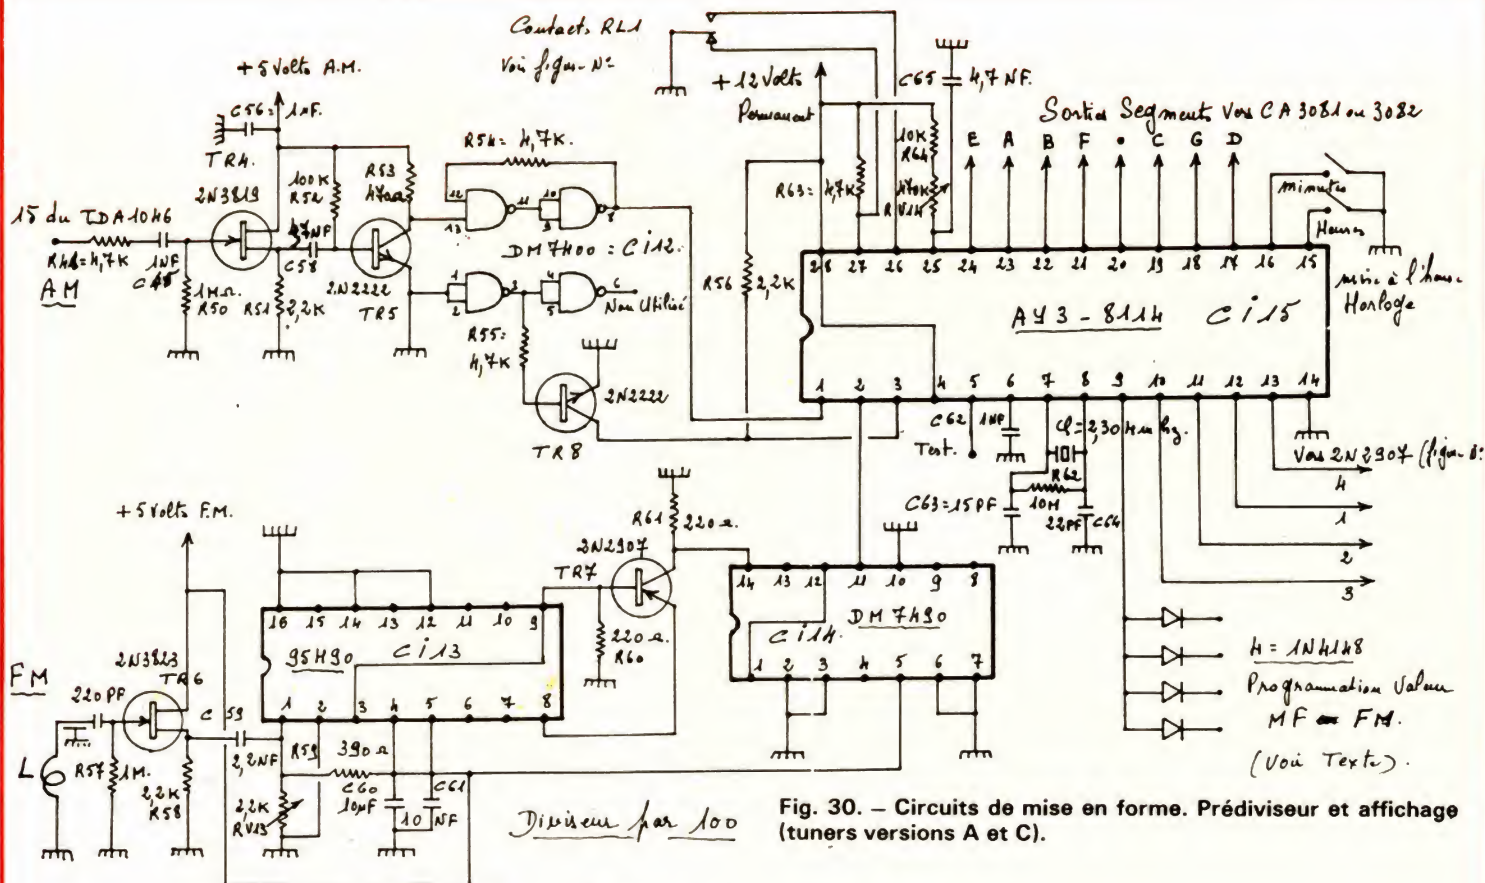 Contacts RL1
Voir figure N°
+12 Volts
Permanent
C65
4,7 NF.
+5 Volts A.M.
C56=
1NF.
TR4.
2N3819
15 du TDA1046
4,7K
1NF
AM
1MΩ
R50
R51
2,2K
100K
R52
C58
R53
470Ω
2N2222
TR5
R54= 4,7K.
12
13
11
10
9
8
DM7400 = Ci12.
1
2
3
4
5
6
Non Utilisé
R55=
4,7K
2N2222
TR8
R56
2,2K
R63=
4,7K
10K
R64
470K
RV14
Sorties Segments vers CA3081 ou 3082
E A B F • C G D
minutes
Heures
mise à l'heure
Horloge
28 27 26 25 24 23 22 21 20 19 18 17 16 15
AY3-8114 Ci15
1 2 3 4 5 6 7 8 9 10 11 12 13 14
C62
1NF
Test.
R62
10M
C63=15PF
22PF
C64
Vers 2N2907
4
1
2
3
+5 Volts F.M.
2N3823
TR6
FM
220 PF
L
R57
1M.
2,2K
R58
C59
2,2NF
16 15 14 13 12 11 10 9
95H90
Ci13
1 2 3 4 5 6 7 8
R59
390Ω
2,2K
RV13
C60
10µF
C61
10 NF
R61
220Ω.
2N2907
TR7
220Ω.
R60
14 13 12 11 10 9 8
DM7490
Ci14.
1 2 3 4 5 6 7
4= 1N4148
Programmation Valeur
MF FM.
(Voir Texte).
Diviseur par 100
Fig. 30. – Circuits de mise en forme. Prédiviseur et affichage
(tuners versions A et C).